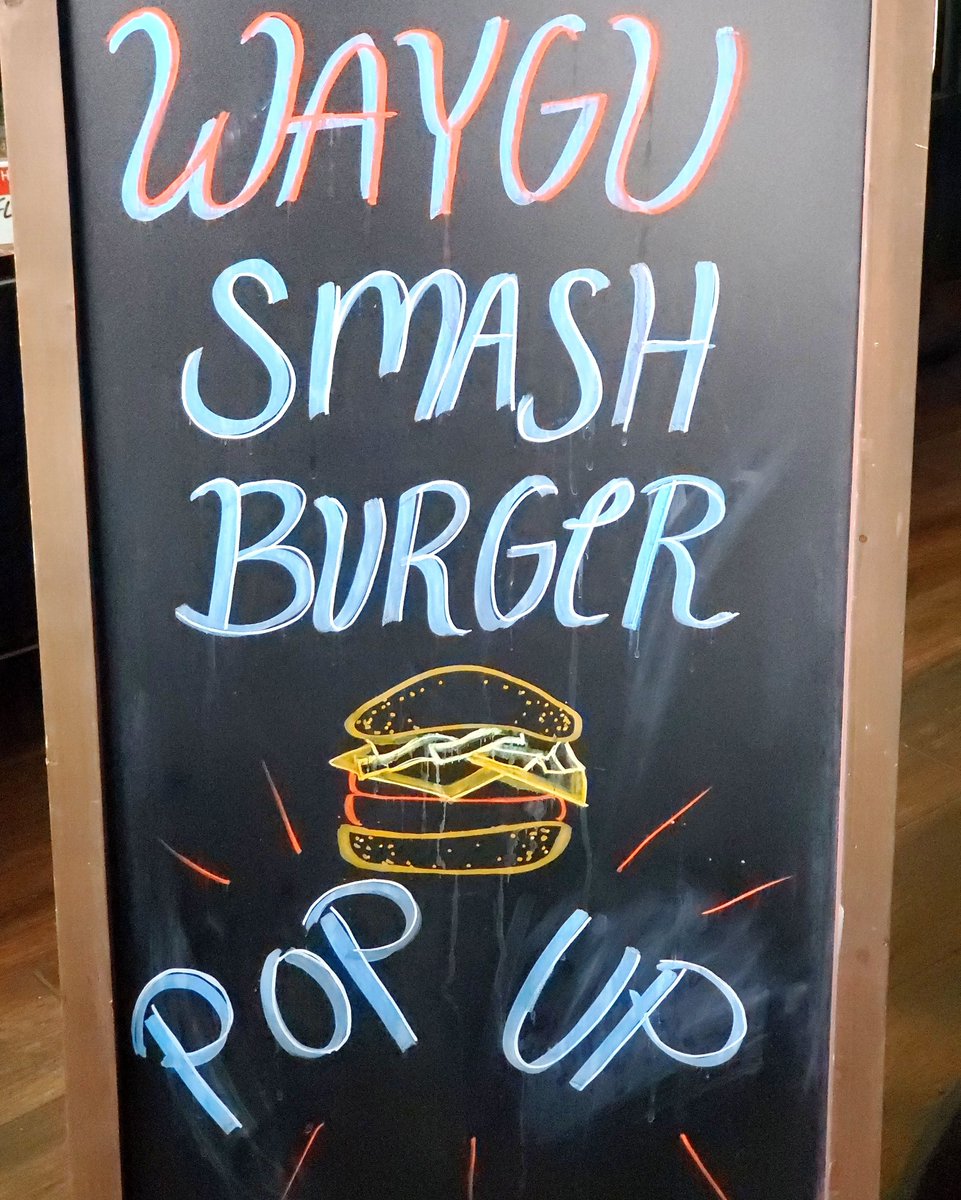 WAYGU
SMASH
BURGER
POP UP